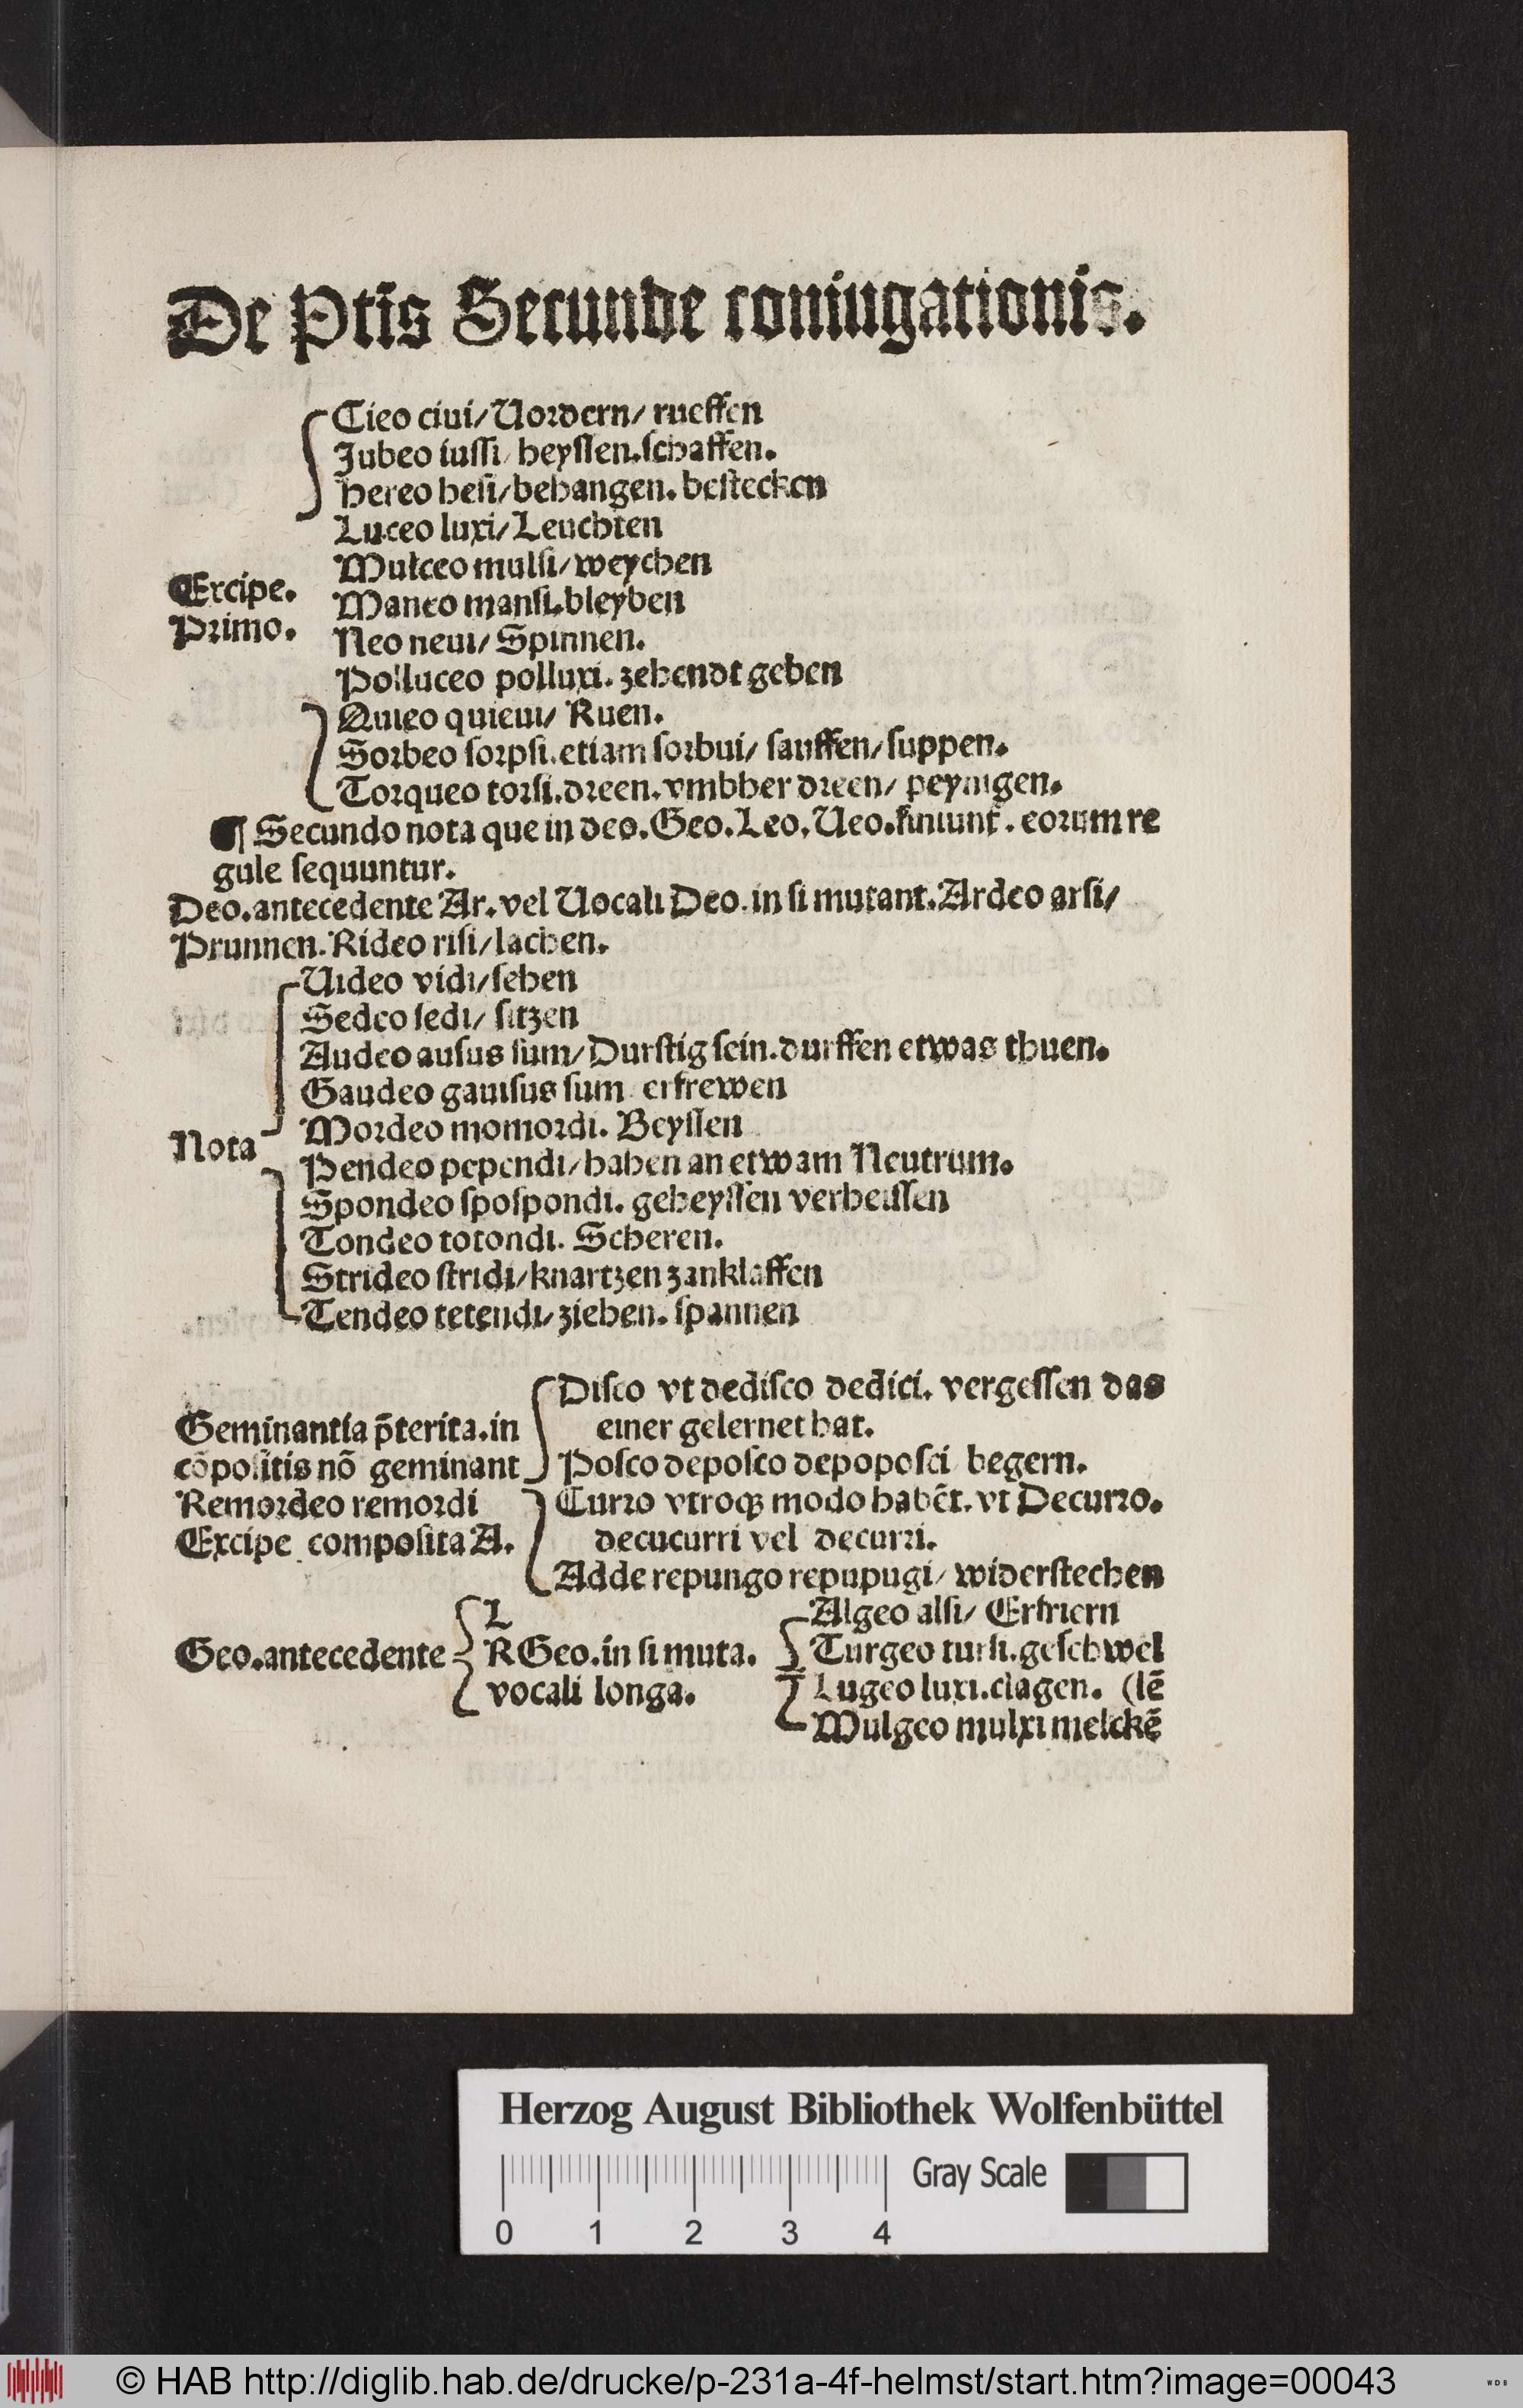 De Ptīs Secunde coniugationis.
Cieo ciui/ Uordern/ rueffen
Jubeo iussi/ heyssen. schaffen.
Hereo hesi/ behangen. bestecken
Luceo luxi/ Leuchten
Mulceo mulsi/ weychen
Excipe. Maneo mansi. bleyben
Primo. Neo neui/ Spinnen.
Polluceo polluxi. zehendt geben
Quieo quieui/ Ruen.
Sorbeo sorpsi. etiam sorbui/ sauffen/ suppen.
Torqueo torsi. dreen. vmbher dreen/ peynigen.
¶ Secundo nota que in deo. Geo. Leo. Ueo. finiunt. eorum re
gule sequuntur.
Deo. antecedente Ar. vel Uocali Deo. in si mutant. Ardeo arsi/
Prunnen. Rideo risi/ lachen.
Uideo vidi/ sehen
Sedeo sedi/ sitzen
Audeo ausus sum/ Durstig sein. durffen etwas thuen.
Gaudeo gauisus sum erfrewen
Mordeo momordi. Beyssen
Nota Pendeo pependi/ haben an etwam Neutrum.
Spondeo spospondi. geheyssen verheissen
Tondeo totondi. Scheren.
Strideo stridi/ knartzen zanklaffen
Tendeo tetendi/ ziehen. spannen
Disco vt dedisco dedici. vergessen das
Geminantia p̄terita. in einer gelernet hat.
cōpositis nō geminant Posco deposco depoposci begern.
Remordeo remordi Curro vtroqꝫ modo habēt. vt Decurro.
Excipe composita A. decucurri vel decurri.
Adde repungo repupugi/ widerstechen
L Algeo alsi/ Erfriern
Geo. antecedente R Geo. in si muta. Turgeo tursi. geschwel
vocali longa. Lugeo luxi. clagen. (lē
Mulgeo mulxi melckē
Herzog August Bibliothek Wolfenbüttel
Gray Scale
0 1 2 3 4
© HAB http://diglib.hab.de/drucke/p-231a-4f-helmst/start.htm?image=00043
WDB